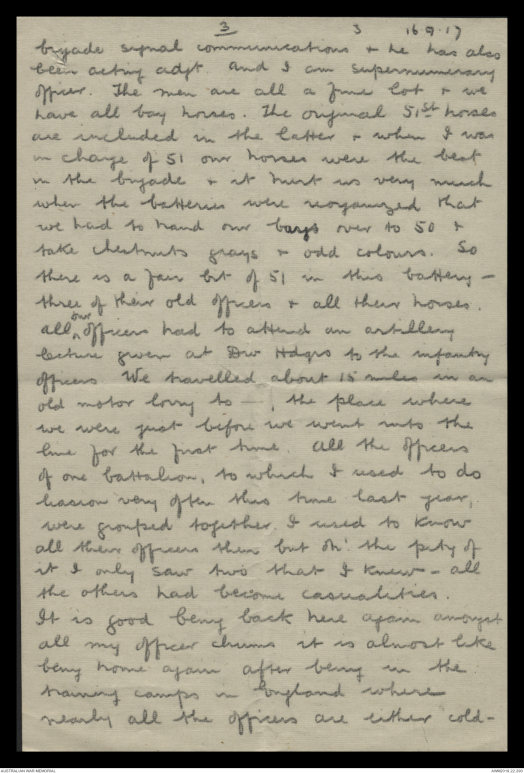 3 3 16.9.17
brigade signal communications + he has also
been acting adjt. and I am supernumerary
officer. The men are all a fine lot + we
have all bay horses. The original 51st horses
are included in the latter + when I was
in charge of 51 our horses were the best
in the brigade + it hurt us very much
when the batteries were reorganized that
we had to hand our bays over to 50 +
take chestnuts grays + odd colours. So
there is a fair bit of 51 in this battery -
three of their old officers + all their horses.
All our officers had to attend an artillery
lecture given at Div Hdqrs to the infantry
officers. We travelled about 15 miles in an
old motor lorry to —, the place where
we were just before we went into the
line for the first time. All the officers
of one battalion, to which I used to do
liasion very often this time last year,
were grouped together. I used to know
all their officers then but oh! the pity of
it I only saw two that I knew - all
the others had become casualities.
It is good being back here again amongst
all my officer chums it is almost like
being home again after being in the
training camps in England where
nearly all the officers are either cold-
AUSTRALIAN WAR MEMORIAL